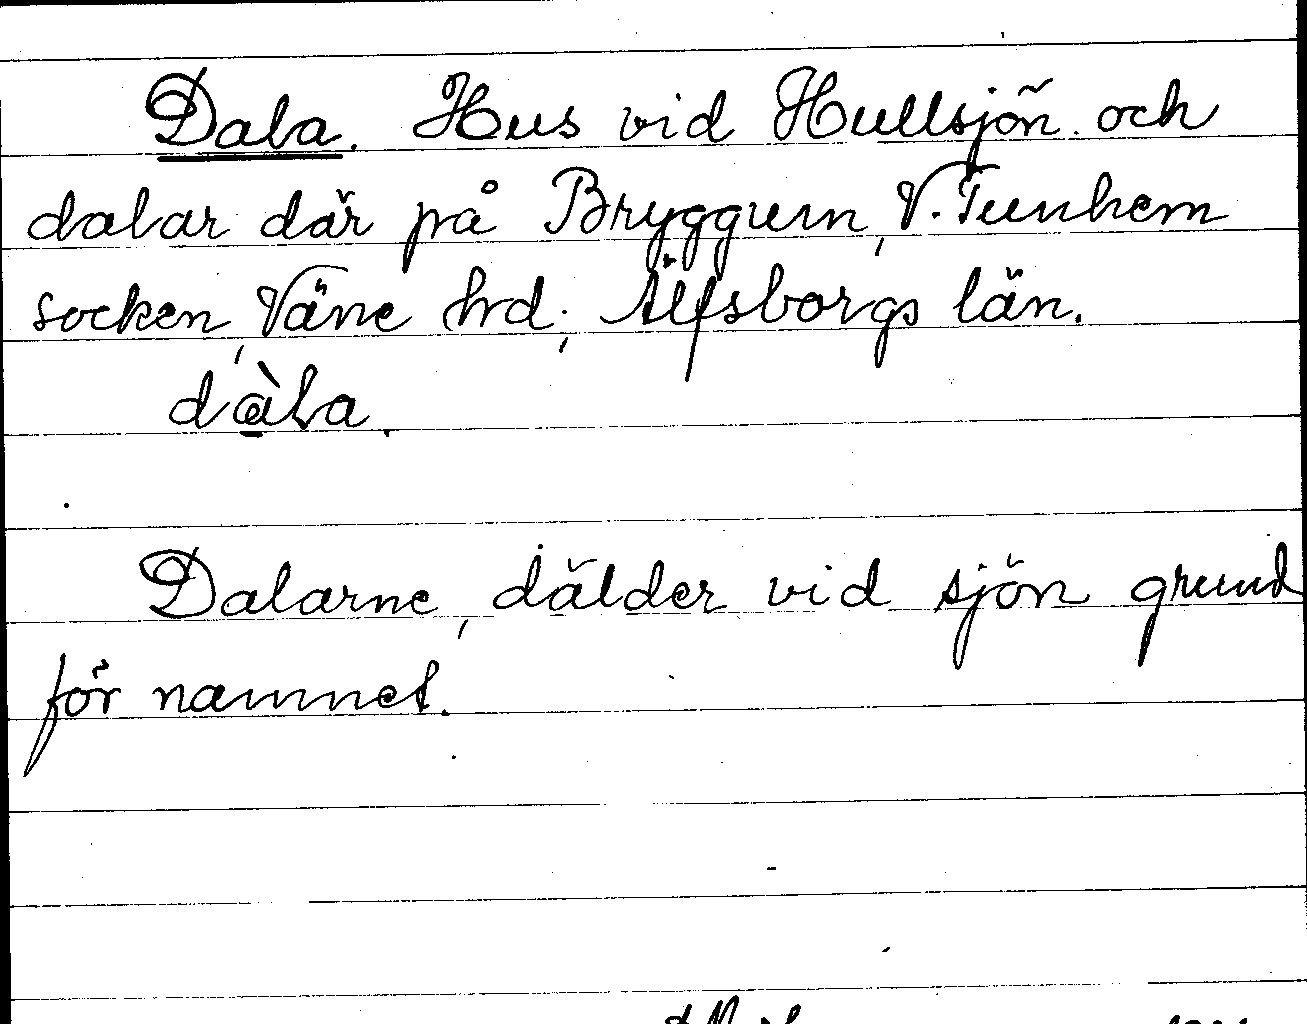 Dala. Hus vid Hullsjön och
dalar där på Bryggum, V. Tunhem
socken, Väne hrd; Älfsborgs län.
dàla.
Dalarne, dälder vid sjön grund
för namnet.